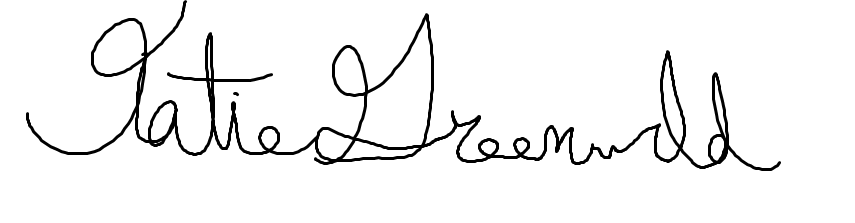 Katie Greenwald